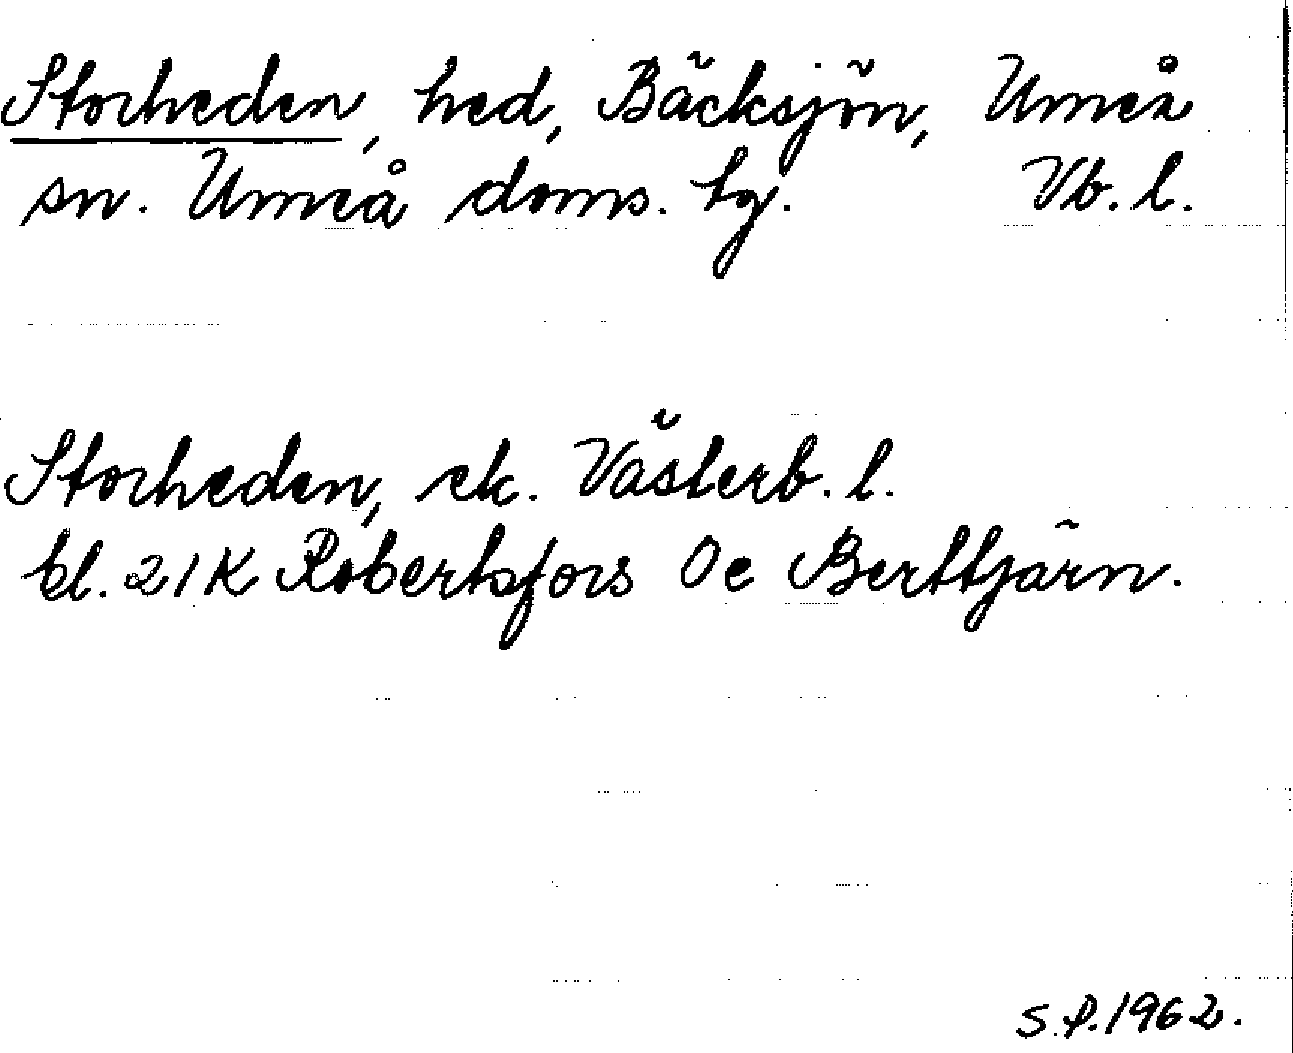 Storheden, hed, Bäcksjön, Umeå
sn. Umeå doms. tg. Vb. l.
Storheden, ek. Västerb. l.
bl. 21 K Robertsfors Oe Berttjärn.
S.P. 1962.